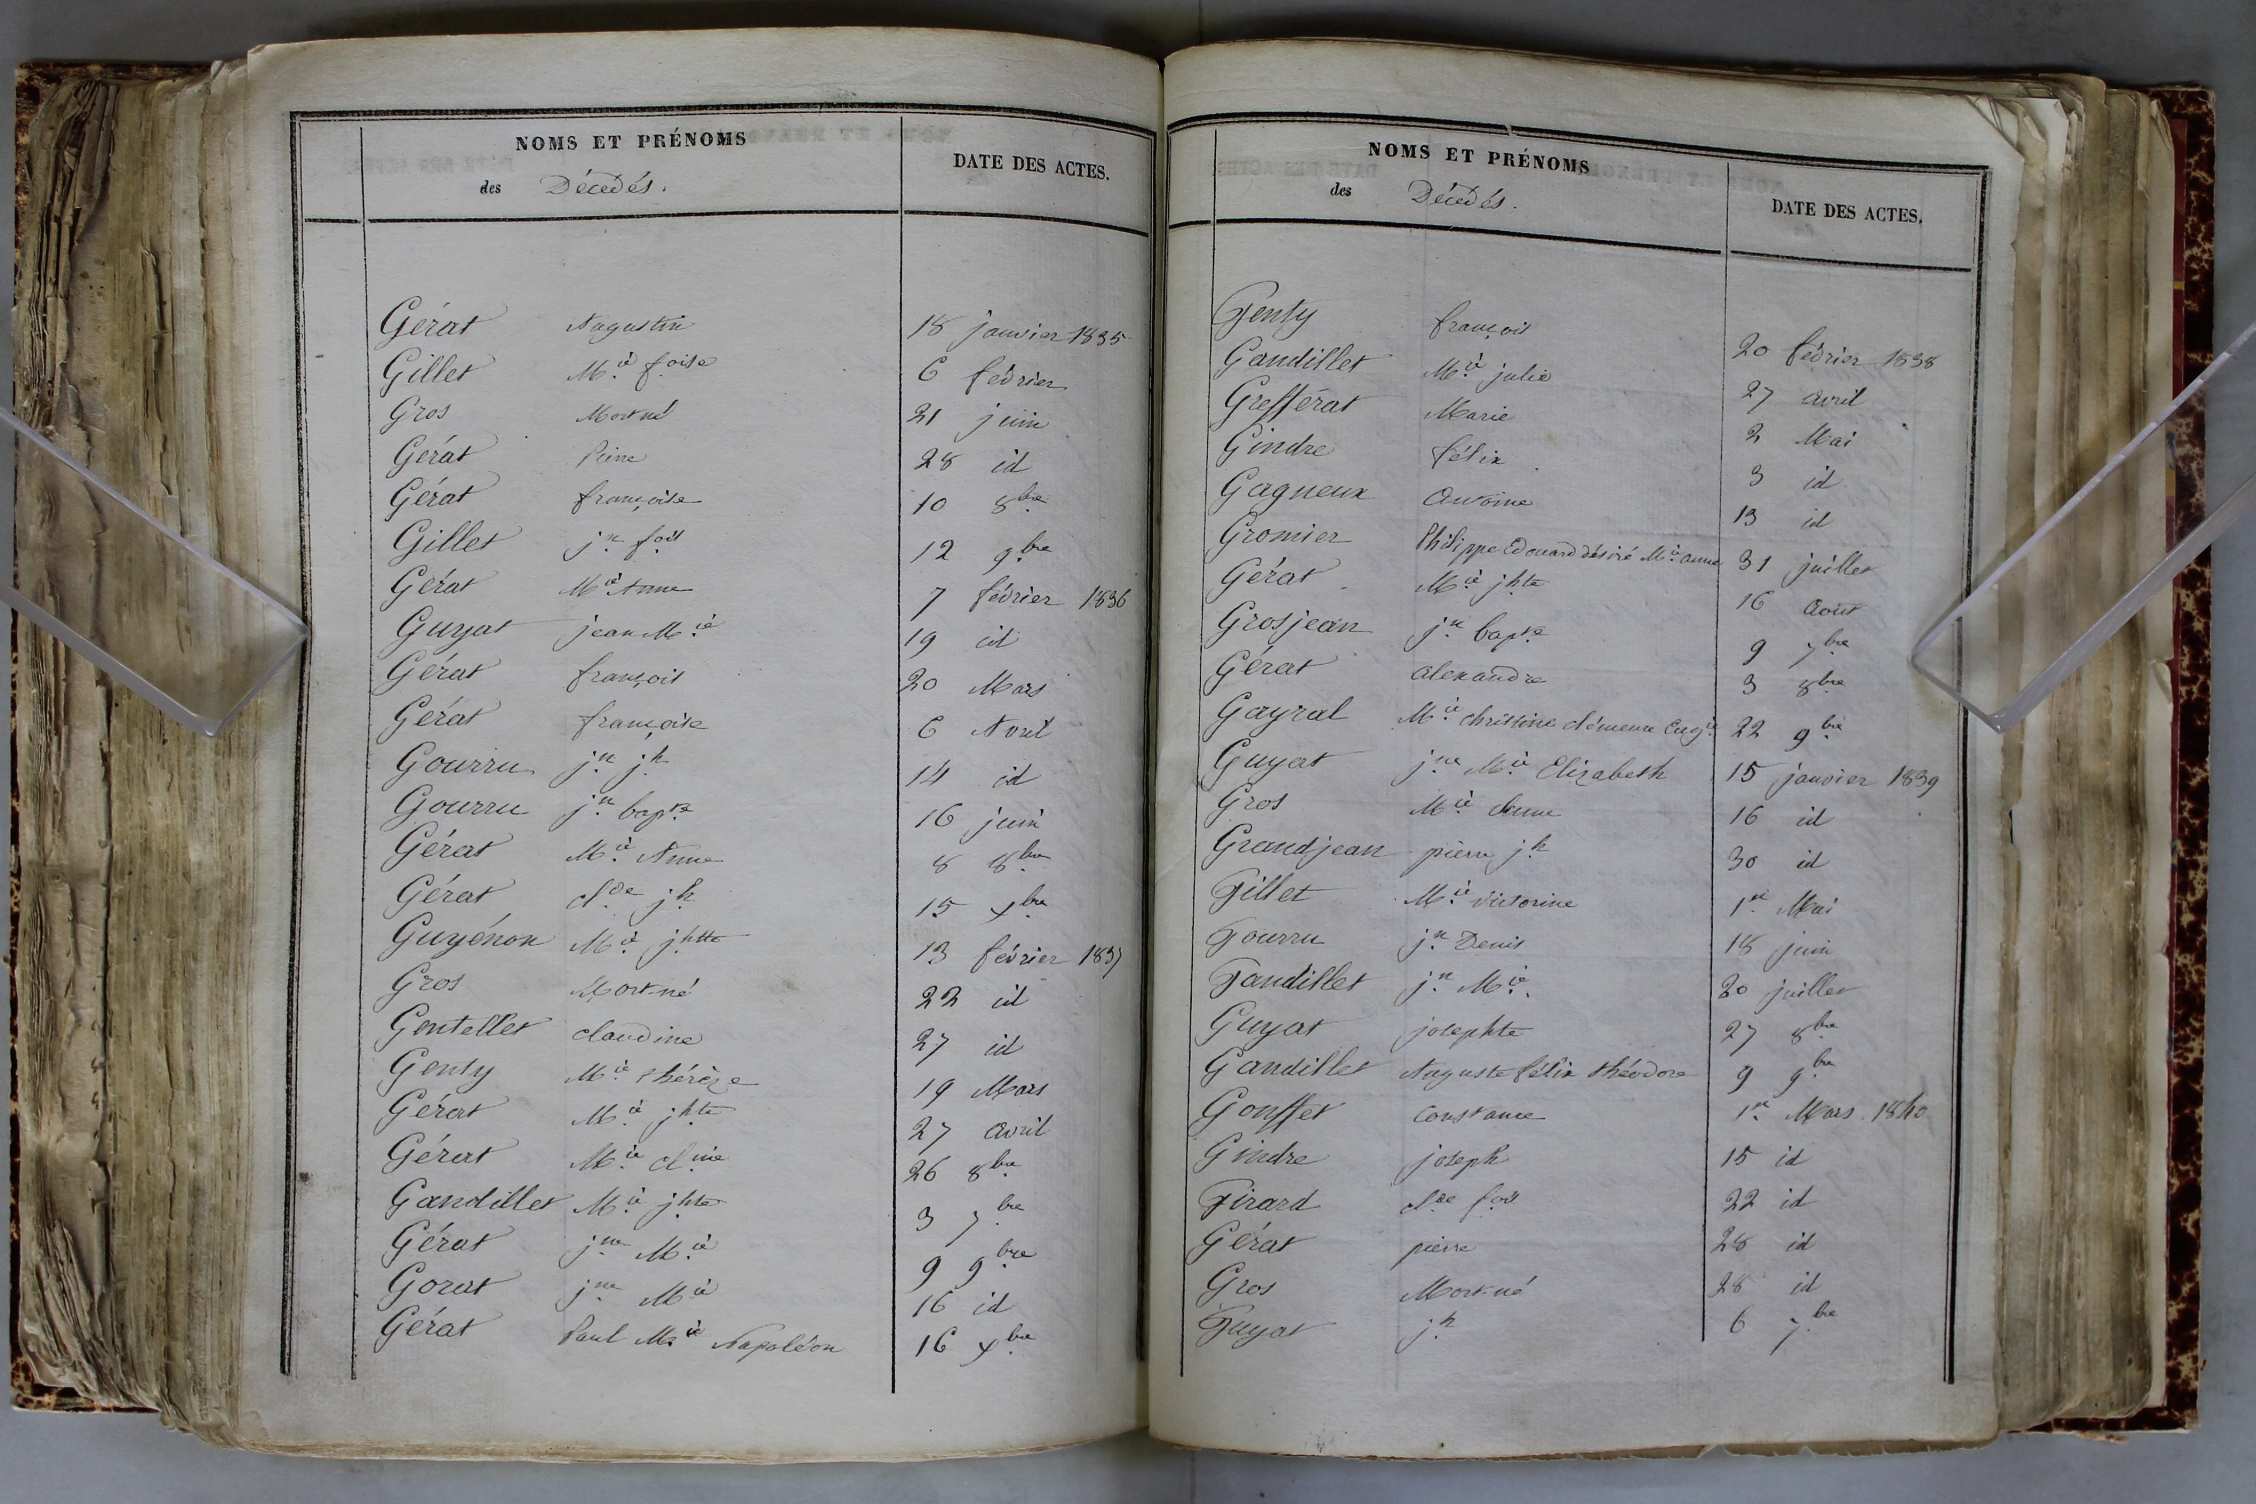 NOMS ET PRÉNOMS
des Décédés.
DATE DES ACTES.
Gérat Augustin 18 janvier 1835
Gillet M.ie f.oise 6 février
Gros Mort né 21 juin
Gérat Pierre 28 id
Gérat françoise 10 8.bre
Gillet j.n f.ois 12 9.bre
Gérat M.ie Anne 7 février 1836
Guyat jean M.ie 19 id
Gérat françois 20 Mars
Gérat françoise 6 Avril
Gourru j.n j.h 14 id
Gourru j.n bap.te 16 juin
Gérat M.ie Anne 8 8.bre
Gérat cl.de j.h 15 x.bre
Guyénon M.ie j.htte 13 février 1837
Gros Mort-né 22 id
Gentellet claudine 27 id
Genty M.ie thérèze 19 Mars
Gérat M.ie j.hte 27 avril
Gérat M.ie cl.ine 26 8.bre
Gandillet M.ie j.hte 3 7.bre
Gérat j.ne M.ie 9 9.bre
Gorat j.ne M.ie 16 id
Gérat Paul M.ie Napoléon 16 x.bre
NOMS ET PRÉNOMS
des Décédés.
DATE DES ACTES.
Genty françois 20 février 1838
Gandillet M.ie julie 27 avril
Grefférat Marie 2 Mai
Gindre félix 3 id
Gagneux Antoine 13 id
Gromier Philippe Edouard désiré M.ie anne 31 juillet
Gérat M.ie j.hte 16 Aout
Grosjean j.n bap.te 9 7.bre
Gérat alexandre 3 8.bre
Gayral M.ie christine clémence Eug.ie 22 9.bre
Guyat j.ne M.ie Elizabeth 15 janvier 1839
Gros M.ie Anne 16 id
Grandjean pierre j.h 30 id
Gillet M.ie victorine 1.er Mai
Gourru j.n Denis 18 juin
Gandillet j.n M.ie 20 juillet
Guyat josephte 27 8.bre
Gandillet Auguste félix théodore 9 9.bre
Gouffet Constance 1.er Mars 1840
Gindre joseph 15 id
Girard cl.de f.ois 22 id
Gérat pierre 28 id
Gros Mort-né 28 id
Guyat j.h 6 7.bre